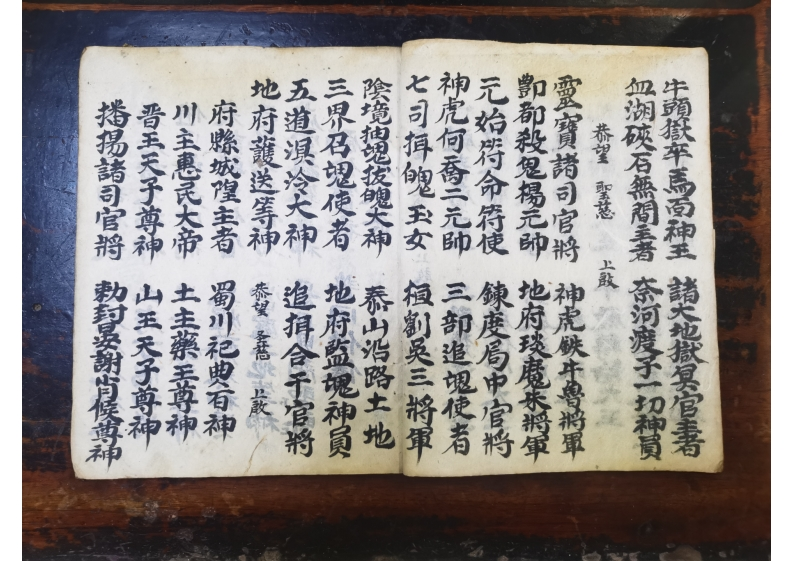 牛頭獄卒馬面神王　諸大地獄冥官主者
血湖硤石無間主者　奈河渡子一切神員
恭望　聖慈　上啟
靈寶諸司官將　神虎鉄牛魯將軍
酆都殺鬼楊元帥　地府琰魔朱將軍
元始符命符使　鍊度局中官將
神虎何喬二元帥　三部追魂使者
七司揖魄玉女　桓劉吳三將軍
陰境抽魂拔魄大神　泰山沿路土地
三界召魂使者　地府監魂神員
五道溟泠大神　追揖合干官將
地府護送等神　恭望　聖慈　上啟
府縣城隍主者　蜀川祀典右神
川主惠民大帝　土主藥王尊神
晋王天子尊神　山王天子尊神
播揚諸司官將　勅封晏謝肖侯尊神